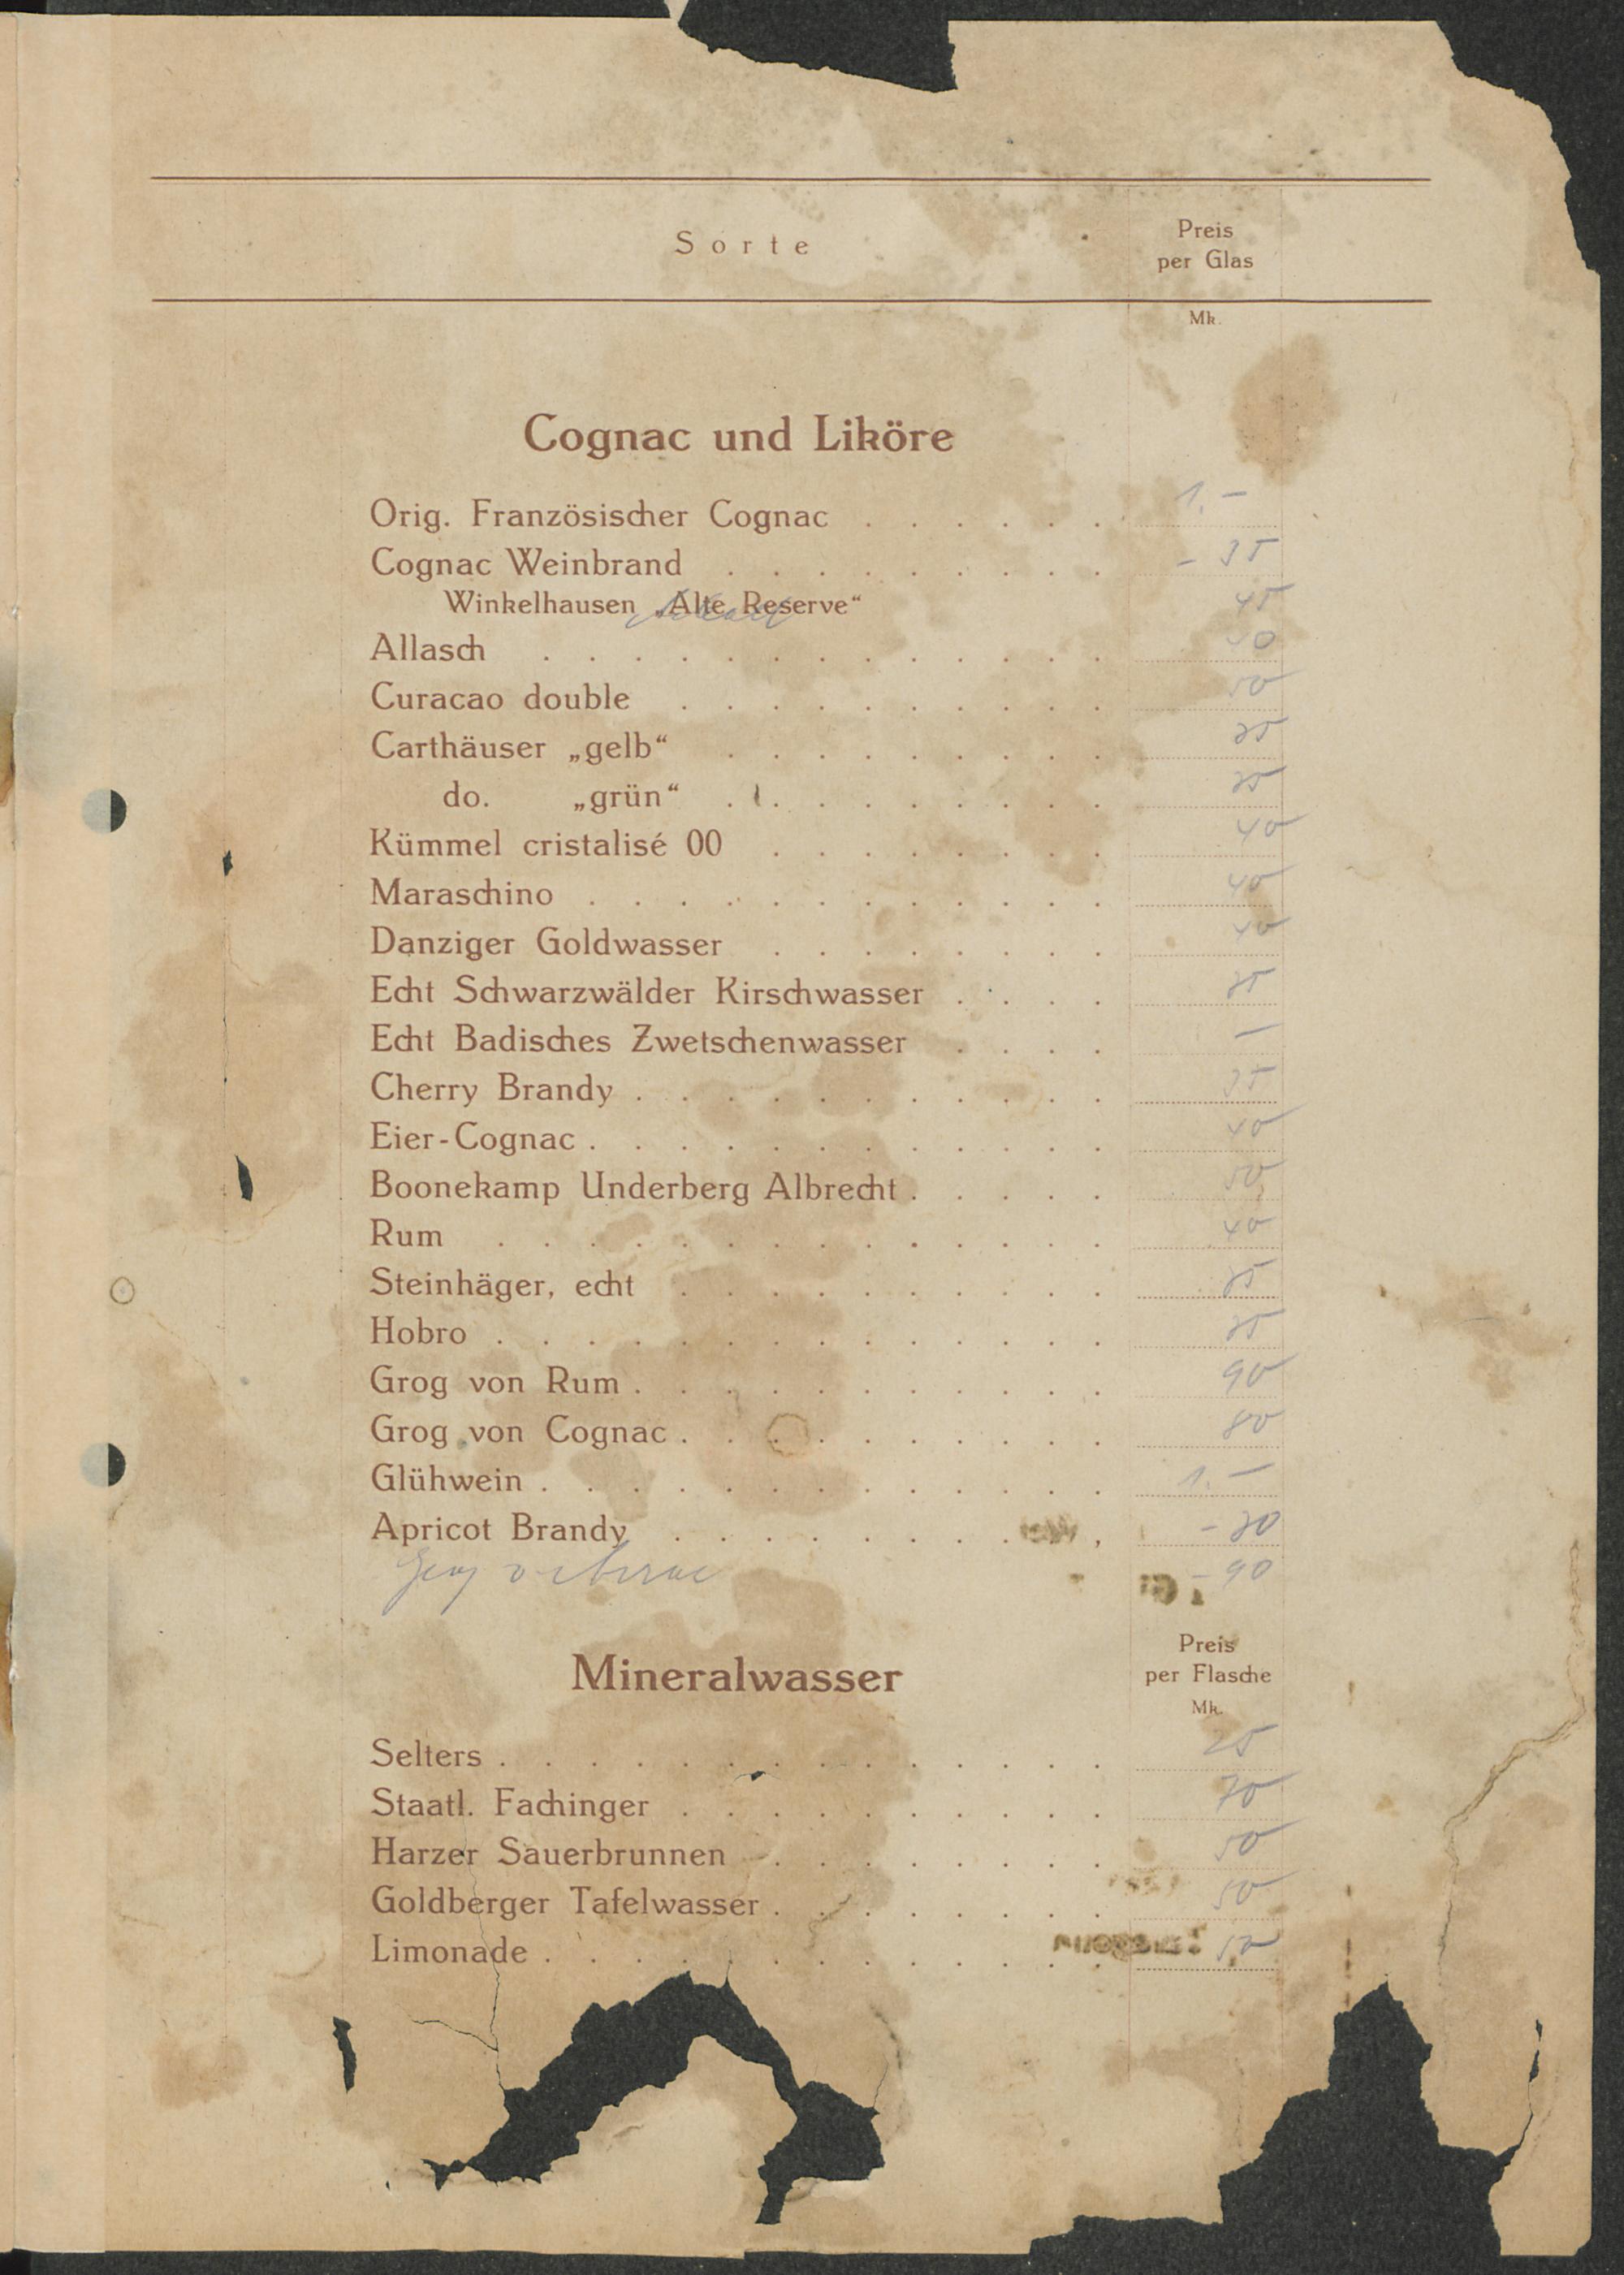 Sorte
Preis
per Glas
Mk.
Cognac und Liköre
Orig. Französischer Cognac . . . . . . 1.–
Cognac Weinbrand . . . . . . . . . – 35
Winkelhausen „Alte Reserve“ 45
Allasch . . . . . . . . . . . . . 40
Curacao double . . . . . . . . . . 50
Carthäuser „gelb“ . . . . . . . . .
do. „grün“ . . . . . . . . .
Kümmel cristalisé 00 . . . . . . . . 40
Maraschino . . . . . . . . . . . . 40
Danziger Goldwasser . . . . . . . . 40
Echt Schwarzwälder Kirschwasser . . . .
Echt Badisches Zwetschenwasser . . . . –
Cherry Brandy . . . . . . . . . . . 35
Eier-Cognac . . . . . . . . . . . . 40
Boonekamp Underberg Albrecht . . . . . 50
Rum . . . . . . . . . . . . . . 40
Steinhäger, echt . . . . . . . . . .
Hobro . . . . . . . . . . . . . .
Grog von Rum . . . . . . . . . . . 90
Grog von Cognac . . . . . . . . . . 80
Glühwein . . . . . . . . . . . . . 1.–
Apricot Brandy . . . . . . . . . .
– 90
Preis
per Flasche
Mk.
Mineralwasser
Selters . . . . . . . . . . . . . . 25
Staatl. Fachinger . . . . . . . . . . 70
Harzer Sauerbrunnen . . . . . . . . 50
Goldberger Tafelwasser . . . . . . . . 50
Limonade . . . . . . . . . . . . . 50